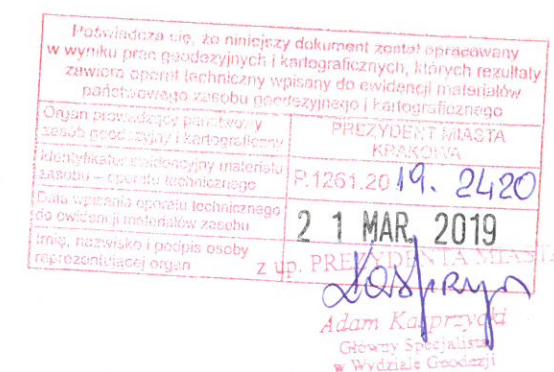 Poświadcza się, że niniejszy dokument został opracowany
w wyniku prac geodezyjnych i kartograficznych, których rezultaty
zawiera operat techniczny wpisany do ewidencji materiałów
państwowego zasobu geodezyjnego i kartograficznego
Organ prowadzący państwowy
zasób geodezyjny i kartograficzny
PREZYDENT MIASTA
KRAKOWA
Identyfikator ewidencyjny materiału
zasobu – operatu technicznego
P.1261.2019.2420
Data wpisania operatu technicznego
do ewidencji materiałów zasobu
21 MAR. 2019
Imię, nazwisko i podpis osoby
reprezentującej organ
z up. PREZYDENTA MIASTA
Adam Kasprzycki
Główny Specjalista
w Wydziale Geodezji